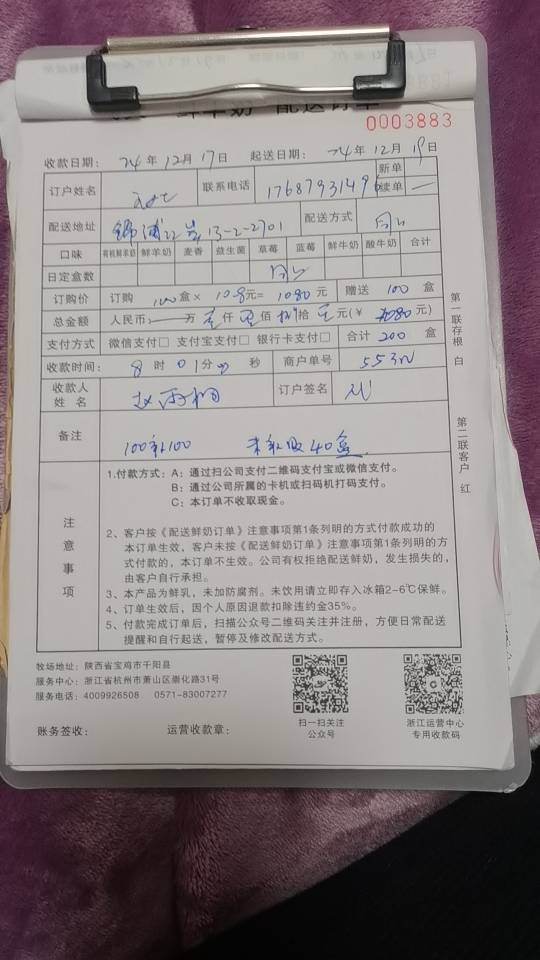 配送订单
0003883
收款日期: 24 年 12 月 17 日 起送日期: 24 年 12 月 19 日
订户姓名 联系电话 1768793149 新单
续单
配送地址 13-2-2701 配送方式
口味 有机鲜羊奶 鲜羊奶 麦香 益生菌 草莓 蓝莓 鲜牛奶 酸牛奶 合计
日定盒数
订购价 订购 100 盒 × 10.8 元= 1080 元 赠送 100 盒
总金额 人民币: 万 壹 仟 零 佰 捌 拾 元(¥ 1080 元)
支付方式 微信支付□ 支付宝支付□ 银行卡支付□ 合计 200 盒
收款时间: 8 时 01 分 秒 商户单号
收款人
姓 名 订户签名
备注 100 100 40盒
注意事项
1.付款方式: A: 通过扫公司支付二维码支付宝或微信支付。
B: 通过公司所属的卡机或扫码机打码支付。
C: 本订单不收取现金。
2、客户按《配送鲜奶订单》注意事项第1条列明的方式付款成功的
本订单生效，客户未按《配送鲜奶订单》注意事项第1条列明的方
式付款的，本订单不生效。公司有权拒绝配送鲜奶，发生损失的，
由客户自行承担。
3、本产品为鲜乳，未加防腐剂。未饮用请立即存入冰箱2-6℃保鲜。
4、订单生效后，因个人原因退款扣除违约金35%。
5、付款完成订单后，扫描公众号二维码关注并注册，方便日常配送
提醒和自行起送，暂停及修改配送方式。
第一联存根 白
第二联客户 红
牧场地址: 陕西省宝鸡市千阳县
服务中心: 浙江省杭州市萧山区崇化路31号
服务电话: 4009926508 0571-83007277
扫一扫关注
公众号
浙江运营中心
专用收款码
账务签收: 运营收款章: